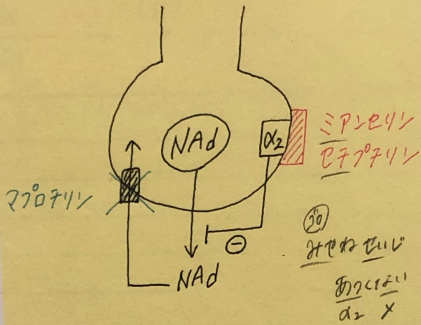 NAd
α2
ミアンセリン
セチプチリン
マプロチリン
⊖
NAd
ゴロ
みせね せいじ
あつくない
α2 ×